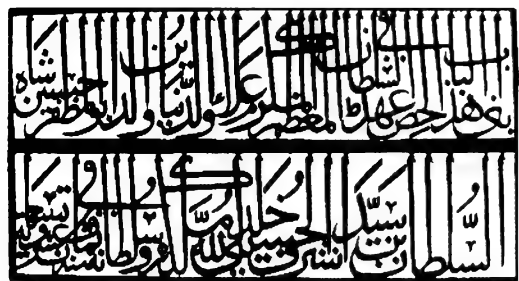 بنى هذا الباب الحصن فى عهد السلطان المعظم المكرم علاء الدنيا والدين ابو المظفر حسين شاه
السلطان بن سيد اشرف الحسينى خلد الله ملكه وسلطانه فى سنة